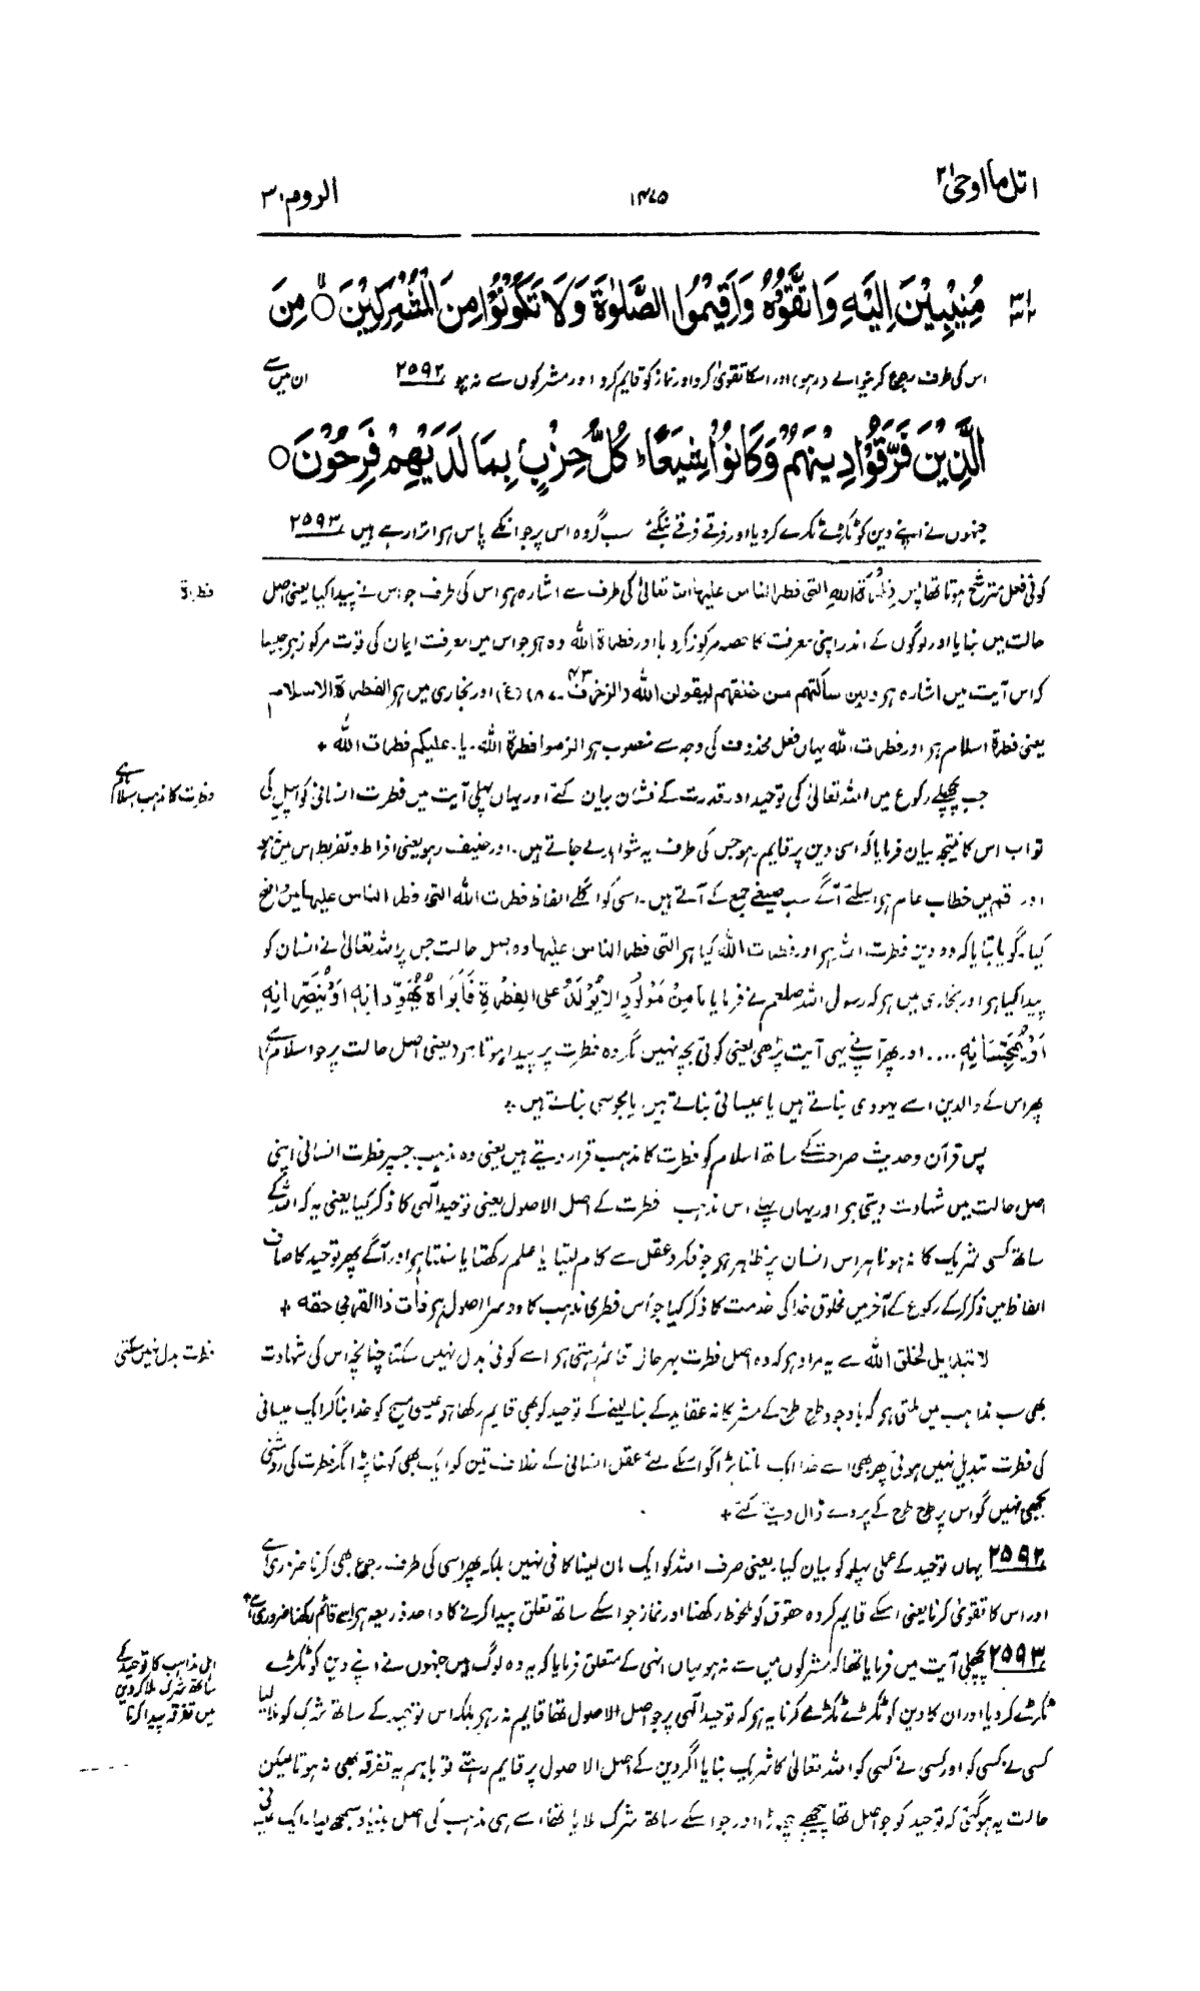 اتل ما اوحی ۲۱
۱۴۷۵
الروم ۳۰
مُنِيْبِيْنَ اِلَيْهِ وَاتَّقُوْهُ وَاَقِيْمُوا الصَّلٰوةَ وَلَا تَكُوْنُوْا مِنَ الْمُشْرِكِيْنَ ۝ مِنَ
اس کی طرف رجوع کرنیوالے درہو، اور اسکا تقویٰ کرو اور نماز کو قایم کرو اور مشرکوں سے نہ ہو ۲۵۹۲ ان میں سے
الَّذِيْنَ فَرَّقُوْا دِيْنَهُمْ وَكَانُوْا شِيَعًا ؕ كُلُّ حِزْبٍۭ بِمَا لَدَيْهِمْ فَرِحُوْنَ ۝
جنہوں نے اپنے دین کو ٹکڑے ٹکڑے کر دیا اور فرقے فرقے بنگئے سب گروہ اس پر جو انکے پاس ہو اترا رہے ہیں ۲۵۹۳
فطرۃ
کوئی فعل مترشح ہوتا تھا پس فطرۃ اللہ التی فطر الناس علیہا اللہ تعالیٰ کی طرف سے اشارہ ہو اس کی طرف جو اس نے پیدا کیا یعنی اصل
حالت میں بنایا اور لوگوں کے اندر اپنی معرفت کا حصہ مرکوز کر دیا اور فطرۃ اللہ وہ ہو جو اس میں معرفت ایمان کی قوت مرکوز ہو جیسا
کہ اس آیت میں اشارہ ہو ولئن سألتهم من خلقهم لیقولن اللہ (الزخرف ۴۳۔ ۸۷) (غ) اور بخاری میں ہو الفطرۃ الاسلام
یعنی فطرۃ اسلام ہو اور فطرت اللہ یہاں فعل محذوف کی وجہ سے منصوب ہو الزموا فطرۃ اللہ۔ یا۔ علیکم فطرت اللہ +
فطرت کا مذہب اسلام ہے
جب پچھلے رکوع میں اللہ تعالیٰ کی توحید اور قدرت کے نشان بیان کئے اور یہاں پہلی آیت میں فطرت انسانی کو اپیل کی
تو اب اس کا نتیجہ بیان فرمایا کہ اسی دین پر قایم رہو جس کی طرف یہ شواہد لے جاتے ہیں۔ اور حنیف رہو یعنی افراط و تفریط اس میں نہ ہو
اور قم میں خطاب عام ہو اسلئے آگے سب صیغے جمع کے آتے ہیں۔ اسی کو اگلے الفاظ فطرت اللہ التی فطر الناس علیہا میں واضح
کیا۔ گویا بتایا کہ وہ دین فطرت اللہ ہو اور فطرت اللہ کیا ہو التی فطر الناس علیہا وہ اصل حالت جس پر اللہ تعالیٰ نے انسان کو
پیدا کیا ہو اور بخاری میں ہو کہ رسول اللہ صلعم نے فرمایا مَا مِنْ مَوْلُوْدٍ اِلَّا يُوْلَدُ عَلَى الْفِطْرَةِ فَاَبَوَاهُ يُهَوِّدَانِهٖ اَوْ يُنَصِّرَانِهٖ
اَوْ يُمَجِّسَانِهٖ .... اور پھر آپ نے یہی آیت پڑھی یعنی کوئی بچہ نہیں مگر وہ فطرت پر پیدا ہوتا ہو (یعنی اصل حالت پر جو اسلام ہے)
پھر اس کے والدین اسے یہودی بناتے ہیں یا عیسائی بناتے ہیں یا مجوسی بناتے ہیں +
پس قرآن و حدیث صراحت کے ساتھ اسلام کو فطرت کا مذہب قرار دیتے ہیں یعنی وہ مذہب جسپر فطرت انسانی اپنی
اصل حالت میں شہادت دیتی ہو اور یہاں پہلے اس مذہب فطرت کے اصل الاصول یعنی توحید الٰہی کا ذکر کیا یعنی یہ کہ اللہ کے
ساتھ کسی شریک کا نہ ہونا ہر اس انسان پر ظاہر ہو جو فکر و عقل سے کام لیتا یا علم رکھتا یا سنتا ہو اور آگے پھر توحید کا صاف
الفاظ میں ذکر کر کے رکوع کے آخر میں مخلوق خدا کی خدمت کا ذکر کیا جو اس فطری مذہب کا دوسرا اصول ہو فاٰت ذا القربی حقه +
فطرت بدل نہیں سکتی
لا تبدیل لخلق اللہ سے یہ مراد ہو کہ وہ اصل فطرت بہر حال قائم رہتی ہو اسے کوئی بدل نہیں سکتا چنانچہ اس کی شہادت
بھی سب مذاہب میں ملتی ہو کہ باوجود طرح طرح کے مشرکانہ عقاید کے بنا لینے کے توحید کو بھی قایم رکھا ہو عیسٰی مسیح کو خدا بنا کر ایک عیسائی
کی فطرت تبدیل نہیں ہوئی پھر بھی اسے خدا ایک ماننا پڑا گو اسکے لئے عقل انسانی کے خلاف تین کو ایک بھی کہنا پڑا اگر فطرت کی روشنی
بجھی نہیں گو اس پر طرح طرح کے پردے ڈال دیئے گئے +
۲۵۹۲ یہاں توحید کے عملی پہلو کو بیان کیا یعنی صرف اللہ کو ایک مان لینا کافی نہیں بلکہ پھر اسی کی طرف رجوع بھی کرنا ضروری ہے
اور اس کا تقویٰ کرنا یعنی اسکے قایم کردہ حقوق کو ملحوظ رکھنا اور نماز جو اسکے ساتھ تعلق پیدا کرنے کا واحد ذریعہ ہو اسے قائم رکھنا ضروری ہے +
اہل مذاہب کا توحید کے
ساتھ شرک ملا کر دین
میں تفرقہ پیدا کرنا
۲۵۹۳ پچھلی آیت میں فرمایا تھا کہ مشرکوں میں سے نہ ہو یہاں انہی کے متعلق فرمایا کہ یہ وہ لوگ ہیں جنہوں نے اپنے دین کو ٹکڑے
ٹکڑے کر دیا اور ان کا دین کو ٹکڑے ٹکڑے کرنا یہ ہو کہ توحید الٰہی پر جو اصل الاصول تھا قایم نہ رہو بلکہ اس توحید کے ساتھ شرک کو ملا لیا
کسی نے کسی کو اور کسی نے کسی کو اللہ تعالیٰ کا شریک بنایا اگر دین کے اصل الاصول پر قایم رہتے تو باہم یہ تفرقہ بھی نہ ہوتا لیکن
حالت یہ ہو گئی کہ توحید کو جو اصل تھا پیچھے چھوڑا اور جو اسکے ساتھ شرک ملایا تھا اسے ہی مذہب کی اصل بنیاد سمجھ لیا۔ ایک